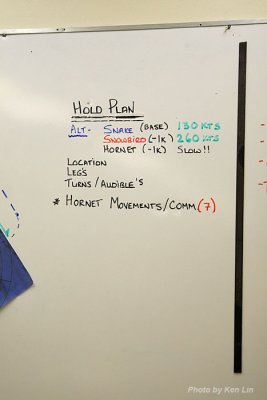 HOLD PLAN
ALT- SNAKE (BASE) 130 KTS
SNOWBIRD (-1K) 260 KTS
HORNET (-1K) SLOW!!
LOCATION
LEGS
TURNS/AUDIBLE'S
* HORNET MOVEMENTS/COMM. (7)
Photo by Ken Lin